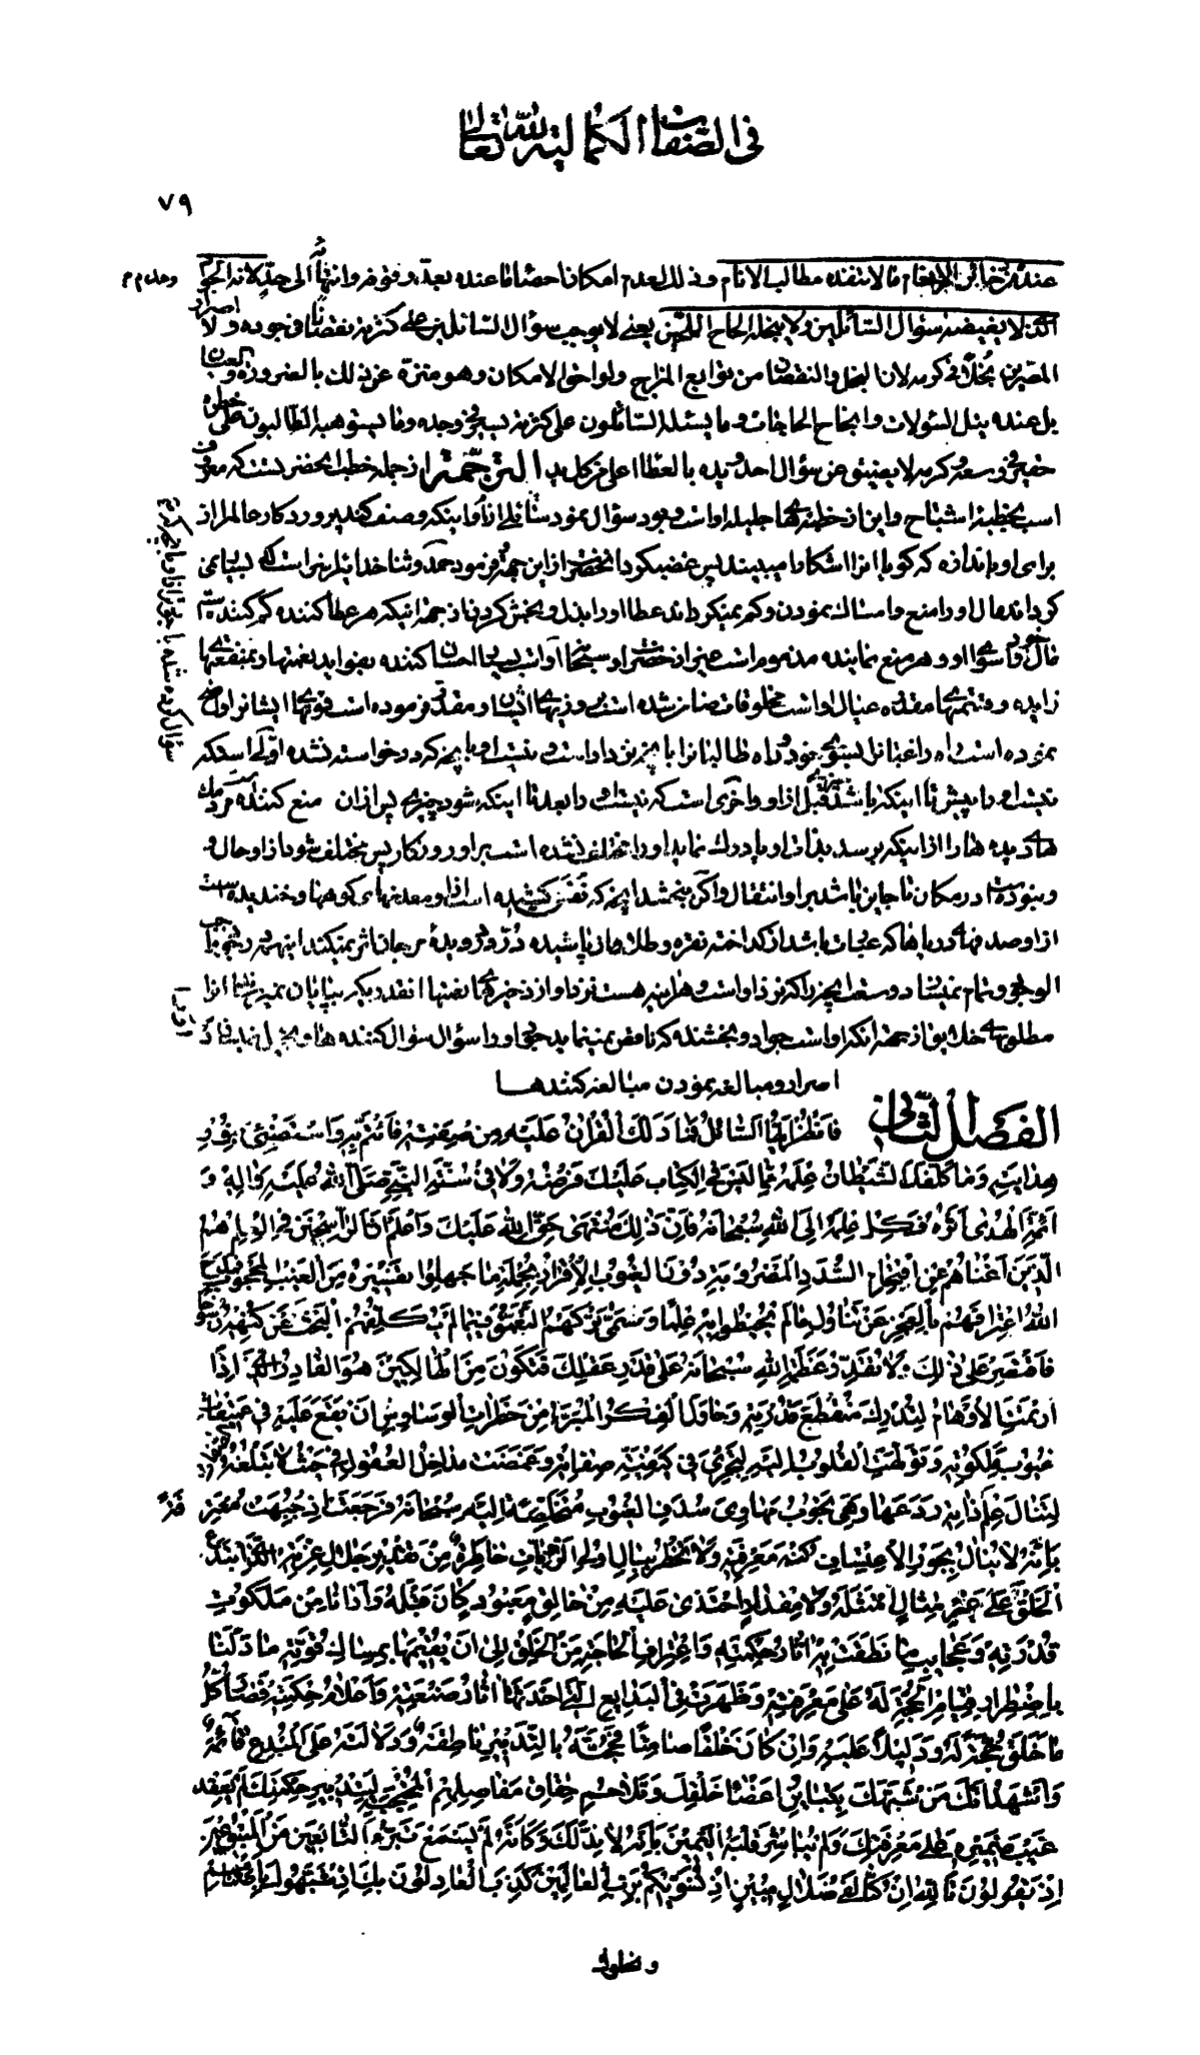 فی الصفات الکمالیة لله تعالی
۷۹
عنده من ذخائر الانعام ما لا تنفده مطالب الانام و ذلك لعدم امکان احصاء ما عنده بعدّ و وقوفه وانتهائه الی حدّ لانه الجواد
الذی لا یغیضه سؤال السائلین ولا یبخله الحاح الملحین یعنی لا یوجب سؤال السائلین علی کثرته نقصانا فی جوده ولا اصرار
المصرین بخلا فی کرمه لان البخل والنقصان من توابع المزاج ولواحق الامکان وهو منزه عن ذلك بالضرورة
بل عنده نیل السؤلات وانجاح الحاجات وما یسئله السائلون علی کثرته یسیر فی وجده وما یستوهبه الطالبون علی خطره
حقیر فی وسعه وکرمه لا یضیق عن سؤال احد ویده بالعطاء اعلی من کل ید الترجمة از جمله خطب انحضرتست که معروف
است بخطبهٔ اشباح واین از خطبه‌های جلیله اوست و بود سؤال نمود سائلی از او اینکه وصف کند پروردگار عالم را از
برای او باندازه که گویا او را آشکارا میبیند پس غضب کرد آنحضرت از این جهة و فرمود حمد وثنا خدایرا سزاست که بسیار نمی
گرداند مال او را منع و امساك نمودن وکم نمیگرداند عطا او را بذل و بخشش کردن از جهة اینکه هر عطا کننده کم کننده است
مال خود را سوای او و هر منع نماینده مذموم است غیر از حضرت او سبحانه اوست بسیار احسان کننده بفواید نعمتها و بمنفعتهای
زایده و قسمتهای مقدره عیال اوست مخلوقات ضامن شده است روزیهای ایشان را و مقدر فرموده است قوتهای ایشانرا و واضح
نموده است راه راغبانرا بسوی خود و راه طالبانرا بآنچه نزد اوست و نیست او بآنچه که درخواسته نشده اولی است که
نیست او را پیش تا اینکه باشد چیزی قبل از او و آخری است که نیست او را بعد تا اینکه شود چیزی پس از آن منع کننده است مردمك
های دیده‌ها را از اینکه برسد بذات او یا درك نماید او را مختلف نشده است بر او روزگار پس مختلف شود از او حال و
و نبوده است در مکان تا جایز باشد بر او انتقال و اگر ببخشد آنچه که نفس کشیده است از او معدنهای کوهها و خندیده است
از او صدفهای دریاها که عبارت باشد از گداخته نقره و طلا و از پاشیده درّ و درویدهٔ مرجان اثر نمیکند اینها در جود واجب
الوجود و تمام نمینماید وسعت آنچیز را که نزد اوست و هرآینه هست نزد او از ذخیره‌های نعمتها آنقدر دیگر بیپایان که تمام نمینماید آنرا
مطلوبهای خلایق از جهة آنکه اوست جواد و بخشنده که ناقص نمینماید جود او را سؤال سؤال کننده‌ها و بخیل نمینماید
اصرار و مبالغه نمودن مبالغه کنندها
الفصل الثانی فانظر ایها السائل فما دلك القرآن علیه من صفته فائتم به واستضئ بنور
هدایته وما کلفك الشیطان علمه مما لیس فی الکتاب علیك فرضه ولا فی سنة النبی صلی الله علیه واله و
ائمة الهدی اثره فکل علمه الی الله سبحانه فان ذلك منتهی حق الله علیك واعلم ان الراسخین فی العلم هم
الذین اغناهم عن اقتحام السدد المضروبة دون الغیوب الاقرار بجملة ما جهلوا تفسیره من الغیب المحجوب فمدح
الله اعترافهم بالعجز عن تناول ما لم یحیطوا به علما وسمی ترکهم التعمق فیما لم یکلفهم البحث عن کنهه رسوخا
فاقتصر علی ذلك ولا تقدر عظمة الله سبحانه علی قدر عقلك فتکون من الهالکین هو القادر الذی اذا
ارتمت الاوهام لتدرك منقطع قدرته وحاول الفکر المبرء من خطرات الوساوس ان یقع علیه فی عمیقات
غیوب ملکوته وتولهت القلوب الیه لتجری فی کیفیة صفاته وغمضت مداخل العقول فی حیث لا تبلغه الصفات
لتنال علم ذاته ردعها وهی تجوب مهاوی سدف الغیوب متخلصة الیه سبحانه فرجعت اذ جبهت معترفة
بانه لا ینال بجور الاعتساف کنه معرفته ولا تخطر ببال اولی الرویات خاطرة من تقدیر جلال عزته الذی ابتدع
الخلق علی غیر مثال امتثله ولا مقدار احتذی علیه من خالق معبود کان قبله وارانا من ملکوت
قدرته وعجایب ما نطقت به آثار حکمته واعتراف الحاجة من الخلق الی ان یقیمها بمساك قوته ما دلنا
باضطرار قیام الحجة له علی معرفته وظهرت فی البدایع التی احدثها آثار صنعته واعلام حکمته فصار کل
ما خلق حجة له ودلیلا علیه وان کان خلقا صامتا فحجته بالتدبیر ناطقة ودلالته علی المبدع قائمة
واشهد ان من شبهك بتباین اعضاء خلقك وتلاحم حقاق مفاصلهم المحتجبة لتدبیر حکمتك لم یعقد
غیب ضمیره علی معرفتك ولم یباشر قلبه الیقین بانه لا ند لك وکانه لم یسمع تبرء التابعین من المتبوعین
اذ یقولون تالله ان کنا لفی ضلال مبین اذ نسویکم برب العالمین کذب العادلون بك اذ شبهوك باصنامهم
ونحلوك